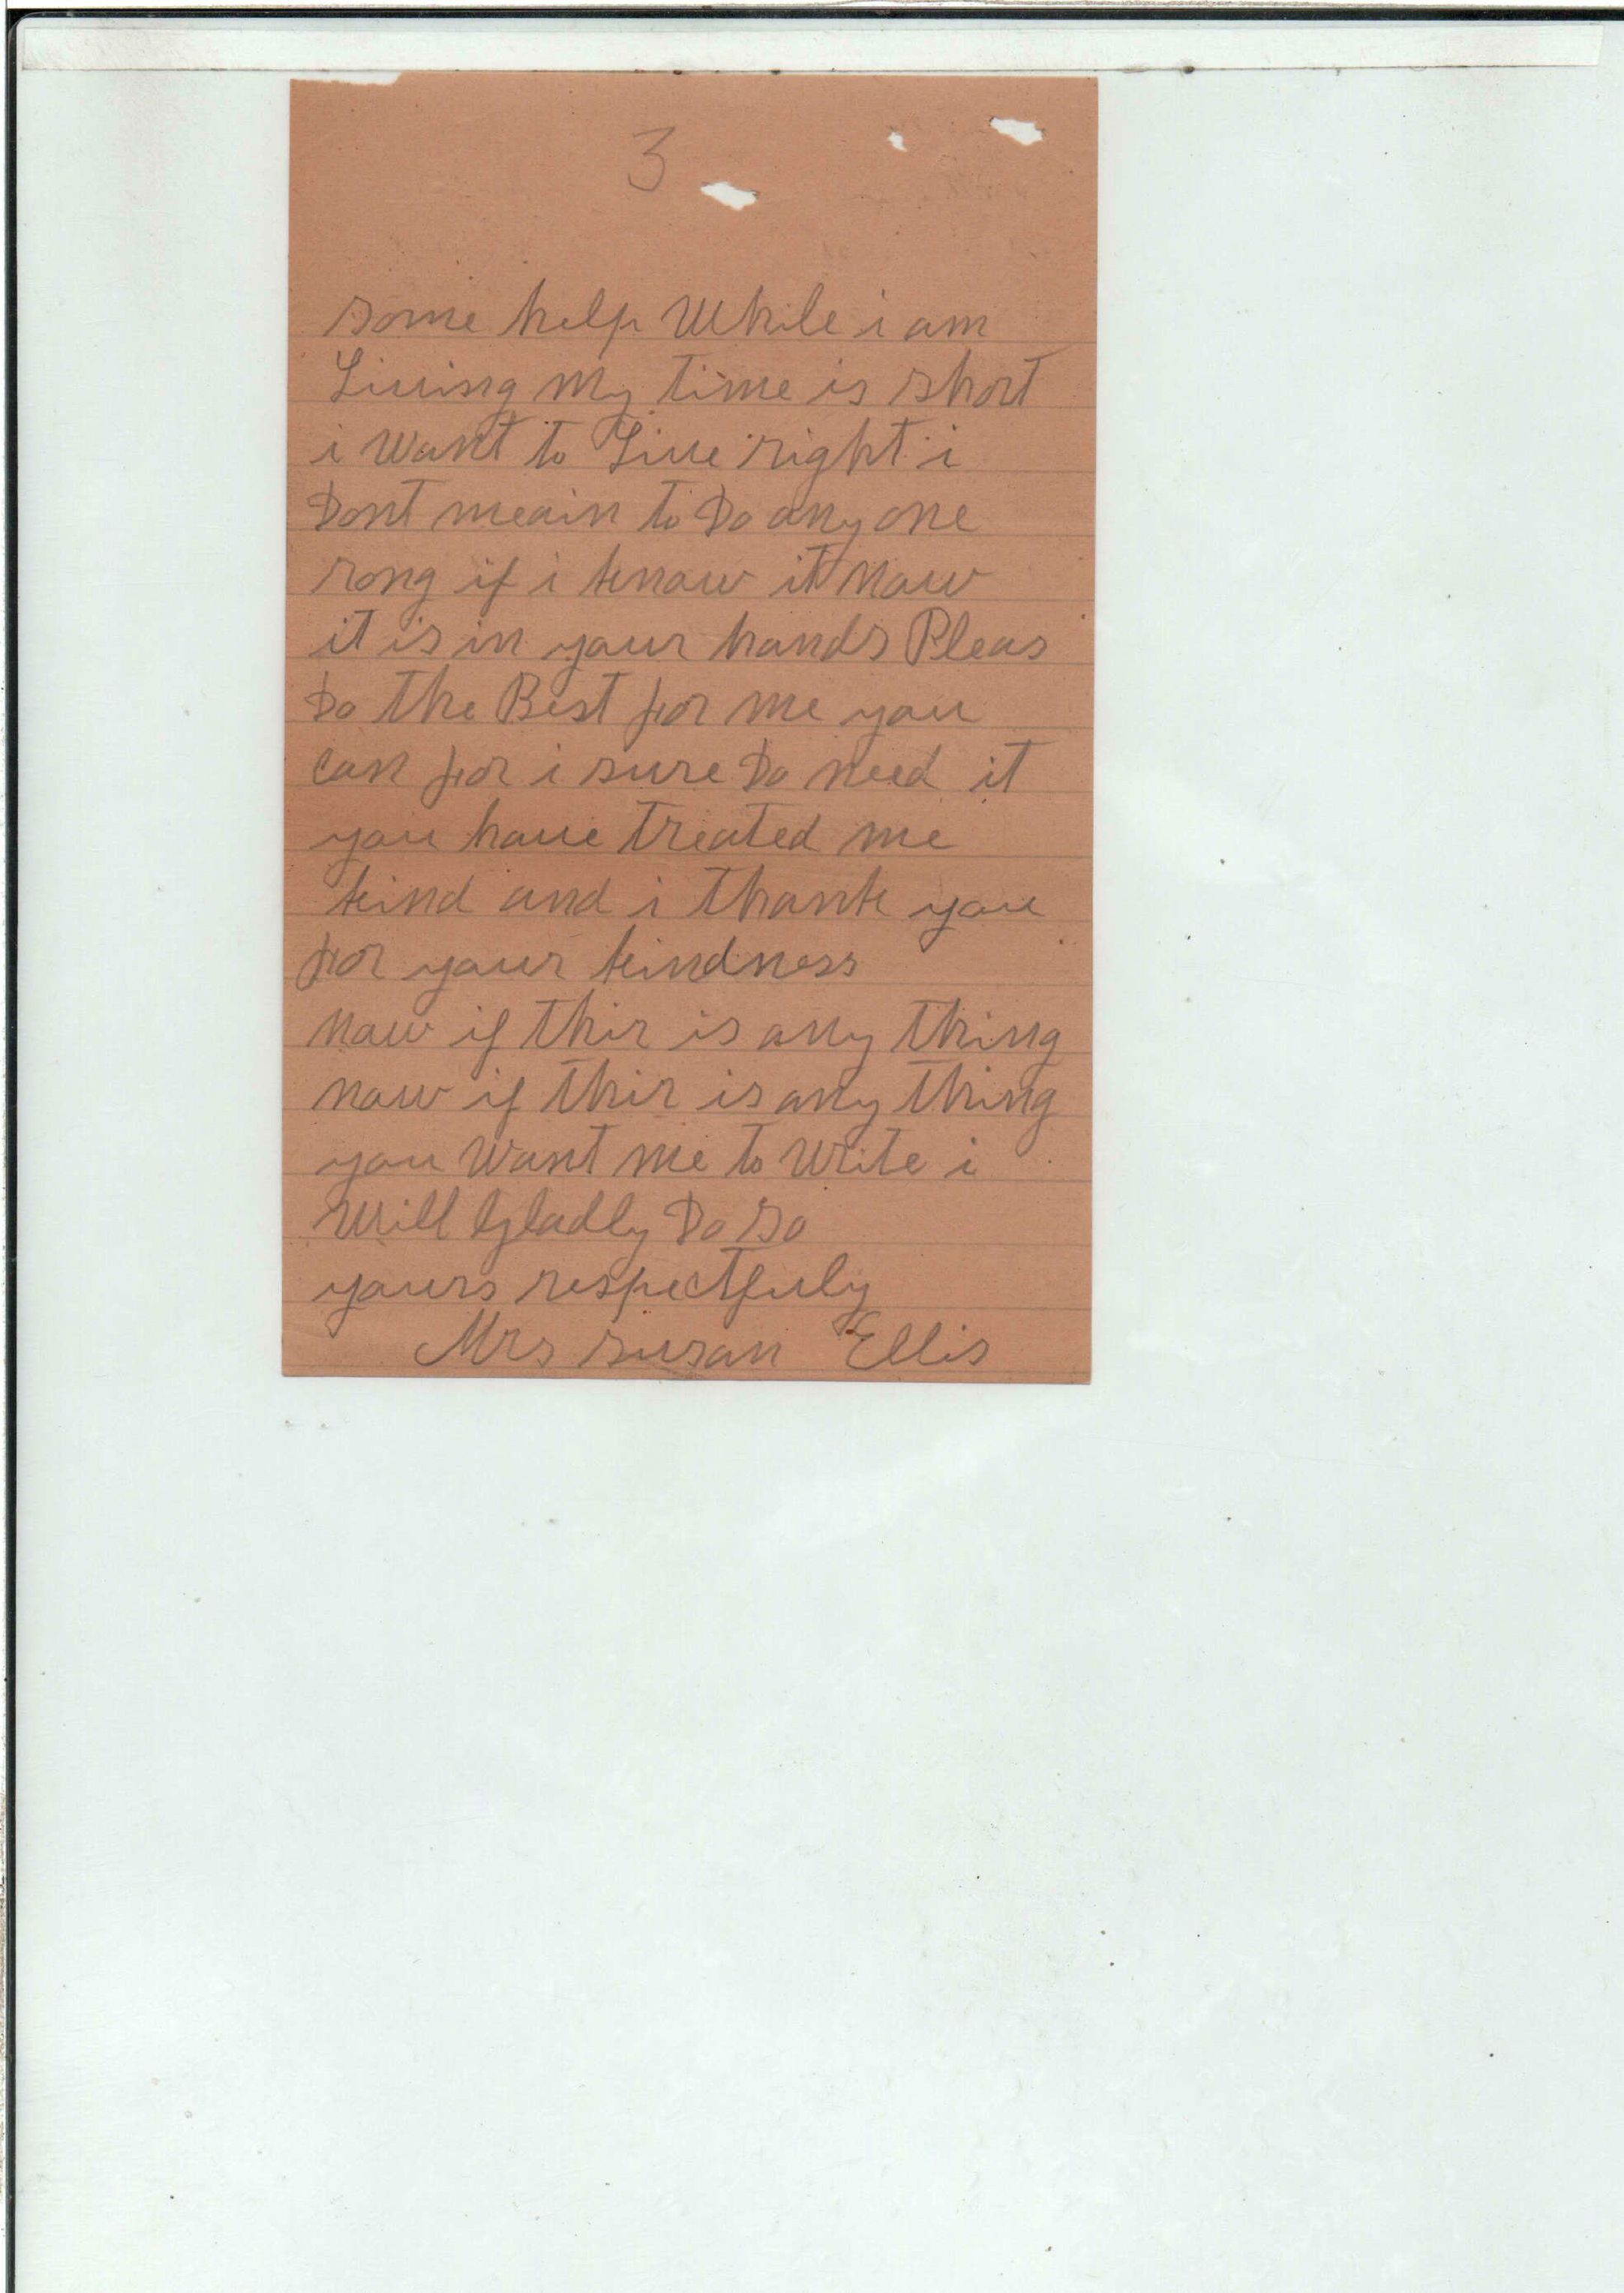 3
some help While i am
Living my time is short
i Want to Live right i
Dont meain to Do any one
rong if i know it now
it is in your hands Pleas
Do the Best for me you
can for i sure Do need it
you have treated me
kind and i thank you
for your kindness
now if thir is any thing
now if thir is any thing
you Want me to Write i
Will Gladly Do so
yours respectfuly
Mrs susan Ellis